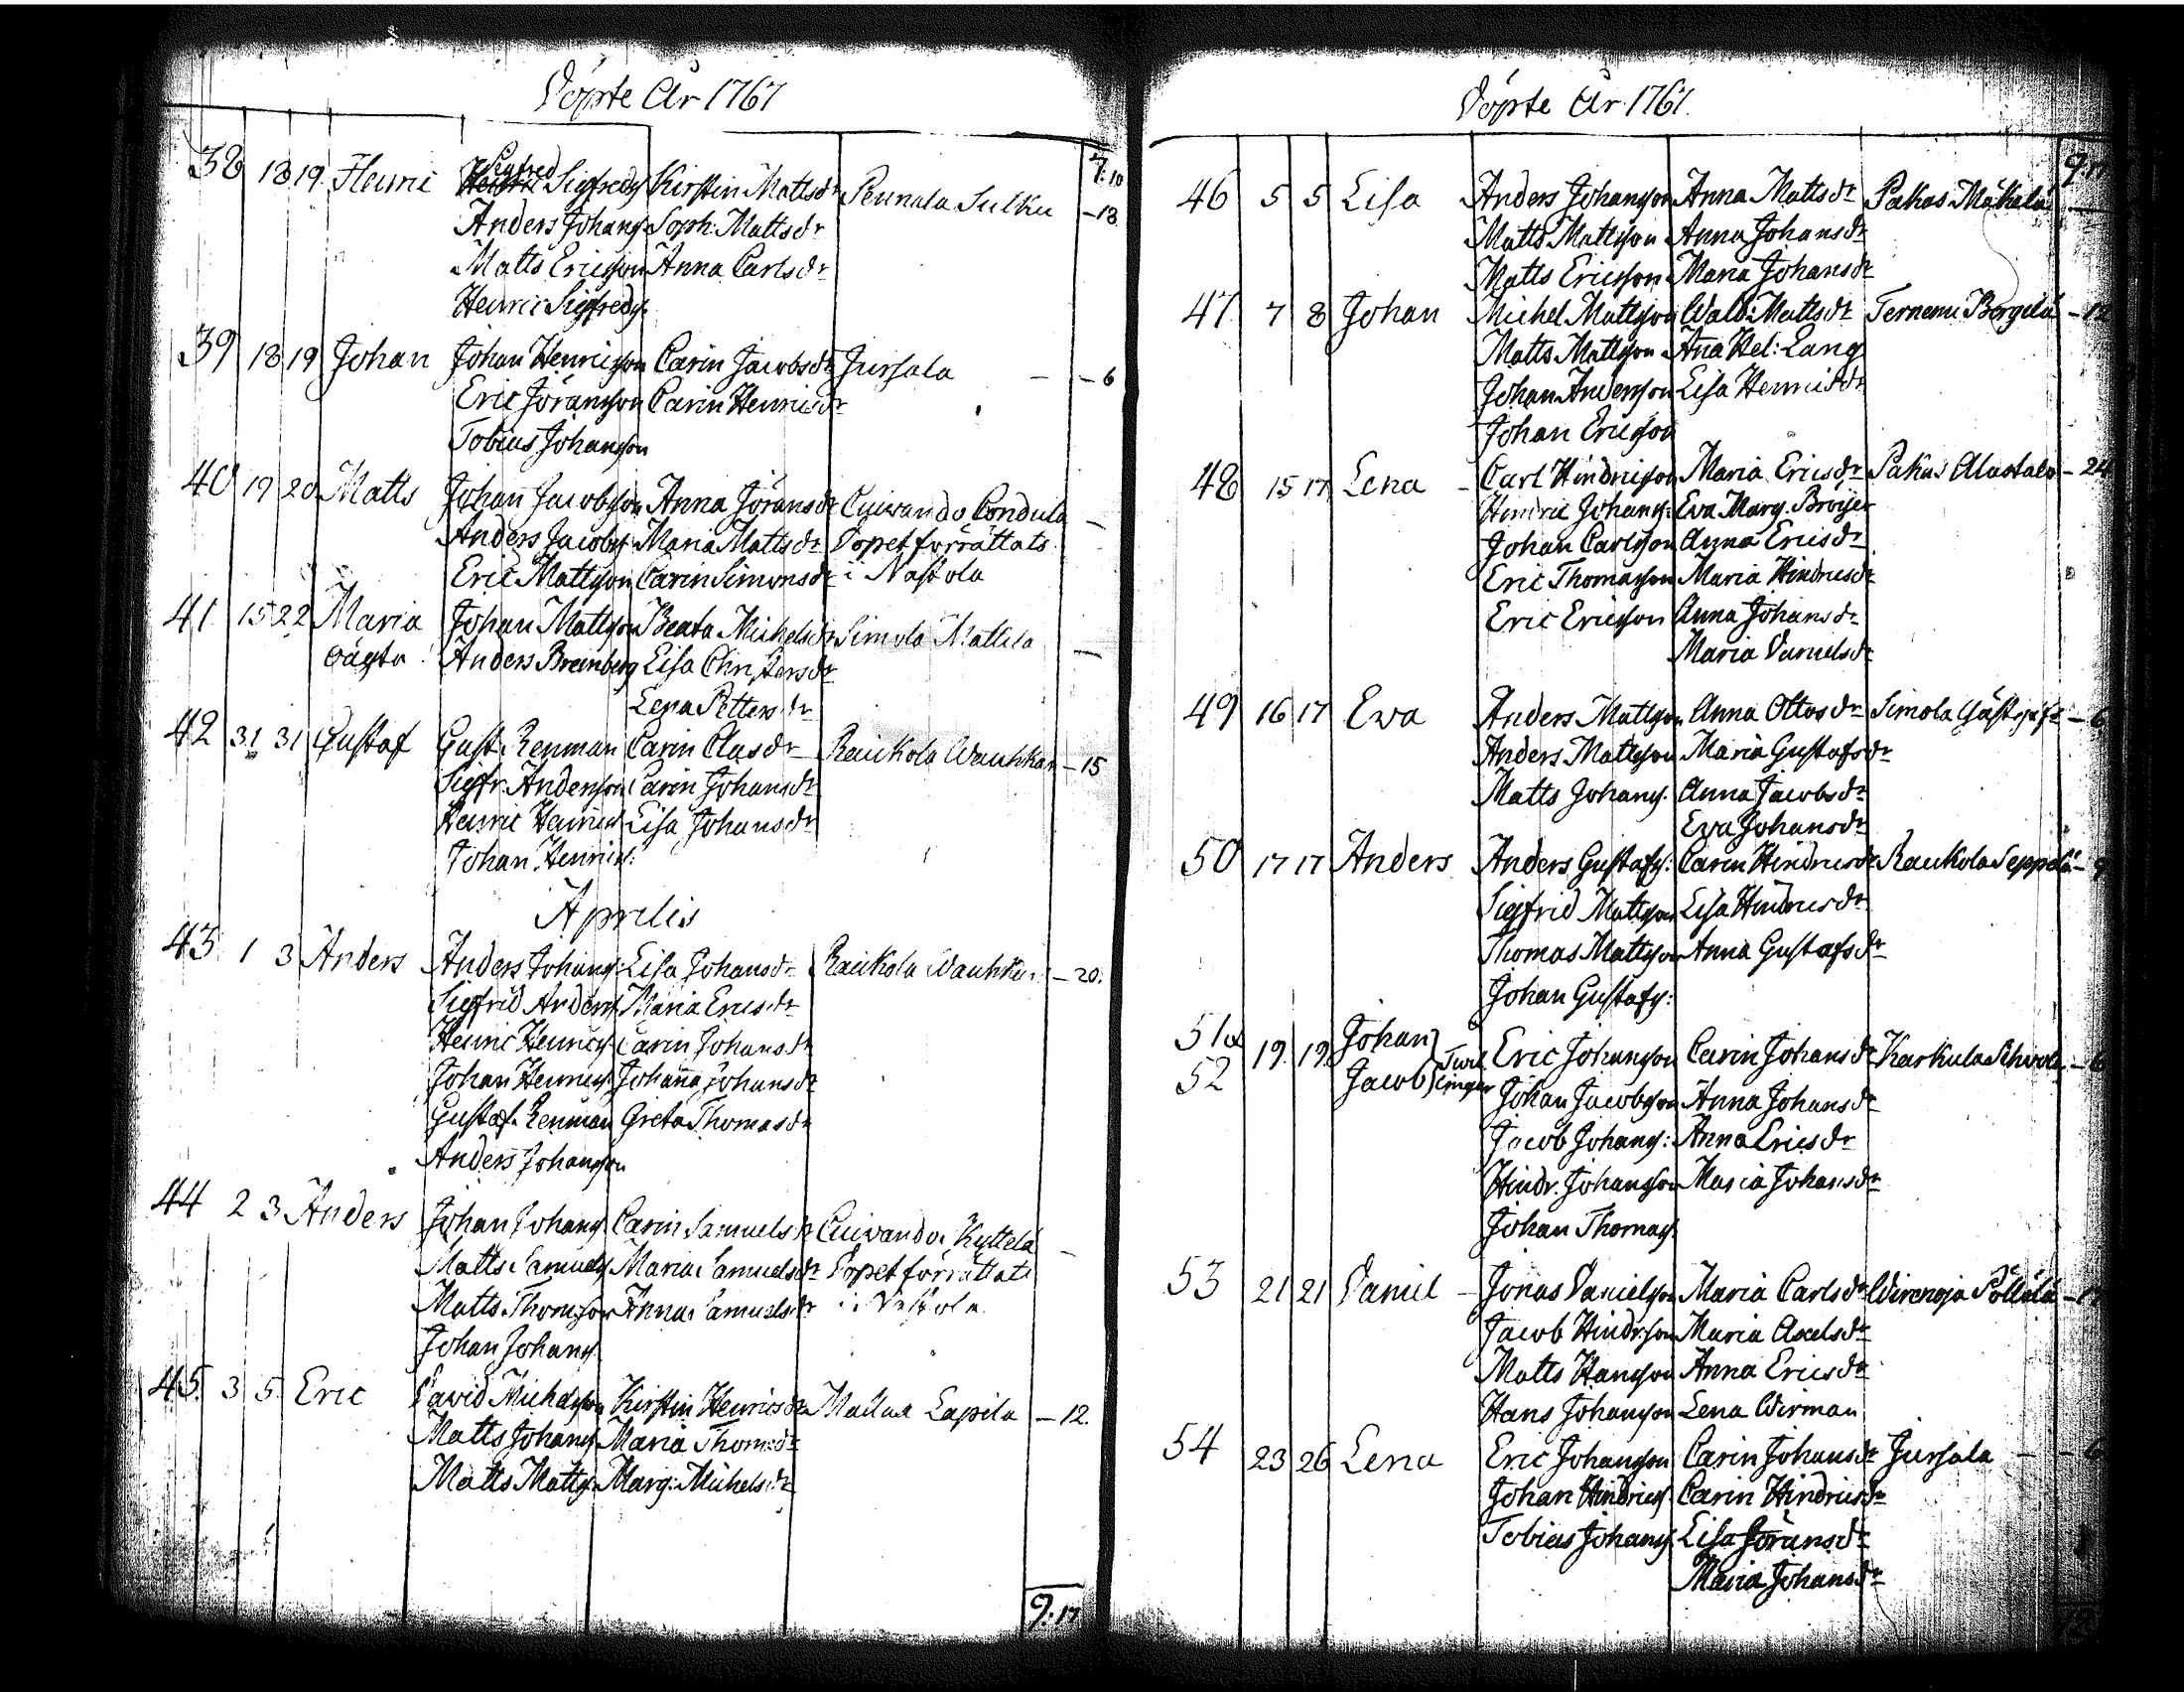 Döpte År 1767
7:10
38 18 19 Henric Sigfred Sigfredss: Kirstin Mattsdr Pennala Sulku -18
Anders Johans: Soph: Mattsdr
Matts Ericsson Anna Carlsdr
Henric Sigfreds:
39 18 19 Johan Johan Henricsson Carin Jacobsdr Jursala - - 6
Eric Jöransson Carin Henricsdr
Tobias Johansson
40 19 20 Matts Johan Jacobsson Anna Jöransdr Cuivando Pondula -
Anders Jacobss: Maria Mattsdr Döpet förrättats
Eric Mattsson Carin Simonsdr i Nastola
41 15 22 Maria Johan Mattsson Beata Michelsdr Simola Mattila -
oägta Anders Brenberg Lisa Christersdr
Lena Pettersdr
42 31 31 Gustaf Gust. Renman Carin Clasdr Raukola Wauhkon -15
Sigfr. Andersson Carin Johansdr
Henric Henrics: Lisa Johansdr
Johan Henrics:
Aprilis
43 1 3 Anders Anders Johans: Lisa Johansdr Raukola Wauhko -20.
Sigfrid Anderss: Maria Ericsdr
Henric Henrics: Carin Johansdr
Johan Henrics: Johanna Johansdr
Gustaf Renman Greta Thomasdr
Anders Johansson
44 2 3 Anders Johan Johans: Carin Samuelsdr Cuivando Kyttelä -
Matts Samuels: Maria Samuelsdr Döpet förrättats
Matts Thomsson Anna Samuelsdr i Nastola
Johan Johans:
45. 3 5. Eric David Michelsson Kirstin Henricsdr Mallua Lapila -12.
Matts Johans: Maria Thomsdr
Matts Matts: Marg: Michelsdr
9:17
Döpte År 1767.
9:17
46 5 5 Lisa Anders Johansson Anna Mattsdr Pakas Mäkelä
Matts Mattsson Anna Johansdr
Matts Ericsson Maria Johansdr
47 7 8 Johan Michel Mattsson Walb: Mattsdr Ternemi Borgelä -12
Matts Mattsson Ana Hel: Lang
Johan Andersson Lisa Henricsdr
Johan Ericsson
48 15 17 Lena - Carl Hindricsson Maria Ericsdr Pakas Alastalo -24
Hindric Johans: Eva Marg. Bröijer
Johan Carlsson Anna Ericsdr
Eric Thomasson Maria Hindricsdr
Eric Ericsson Anna Johansdr
Maria Danielsdr
49 16 17 Eva Anders Mattsson Anna Ottosdr Simola Gästgifv -6
Anders Mattsson Maria Gustafsdr
Matts Johans: Anna Jacobsdr
Eva Johansdr
50 17 17 Anders Anders Gustafs: Carin Hindricsdr Raukola Seppälä -9
Sigfrid Mattsson Lisa Hindricsdr
Thomas Mattsson Anna Gustafsdr
Johan Gustafs:
51 a 19. 19. Johan Eric Johansson Carin Johansdr Karkula -6
52 Jacob Twillingar Johan Jacobsson Anna Johansdr
Jacob Johans: Anna Ericsdr
Hindr. Johansson Maria Johansdr
Johan Thomas:
53 21 21 Daniel - Jonas Danielsson Maria Carlsdr Wirenoja Pöllälä -17
Jacob Hindrsson Maria Axelsdr
Matts Hansson Anna Ericsdr
Hans Johansson Lena Wirman
54 23 26 Lena Eric Johansson Carin Johansdr Jursala - - 6
Johan Hindrics: Carin Hindricsdr
Tobias Johans: Lisa Jöransdr
Maria Johansdr